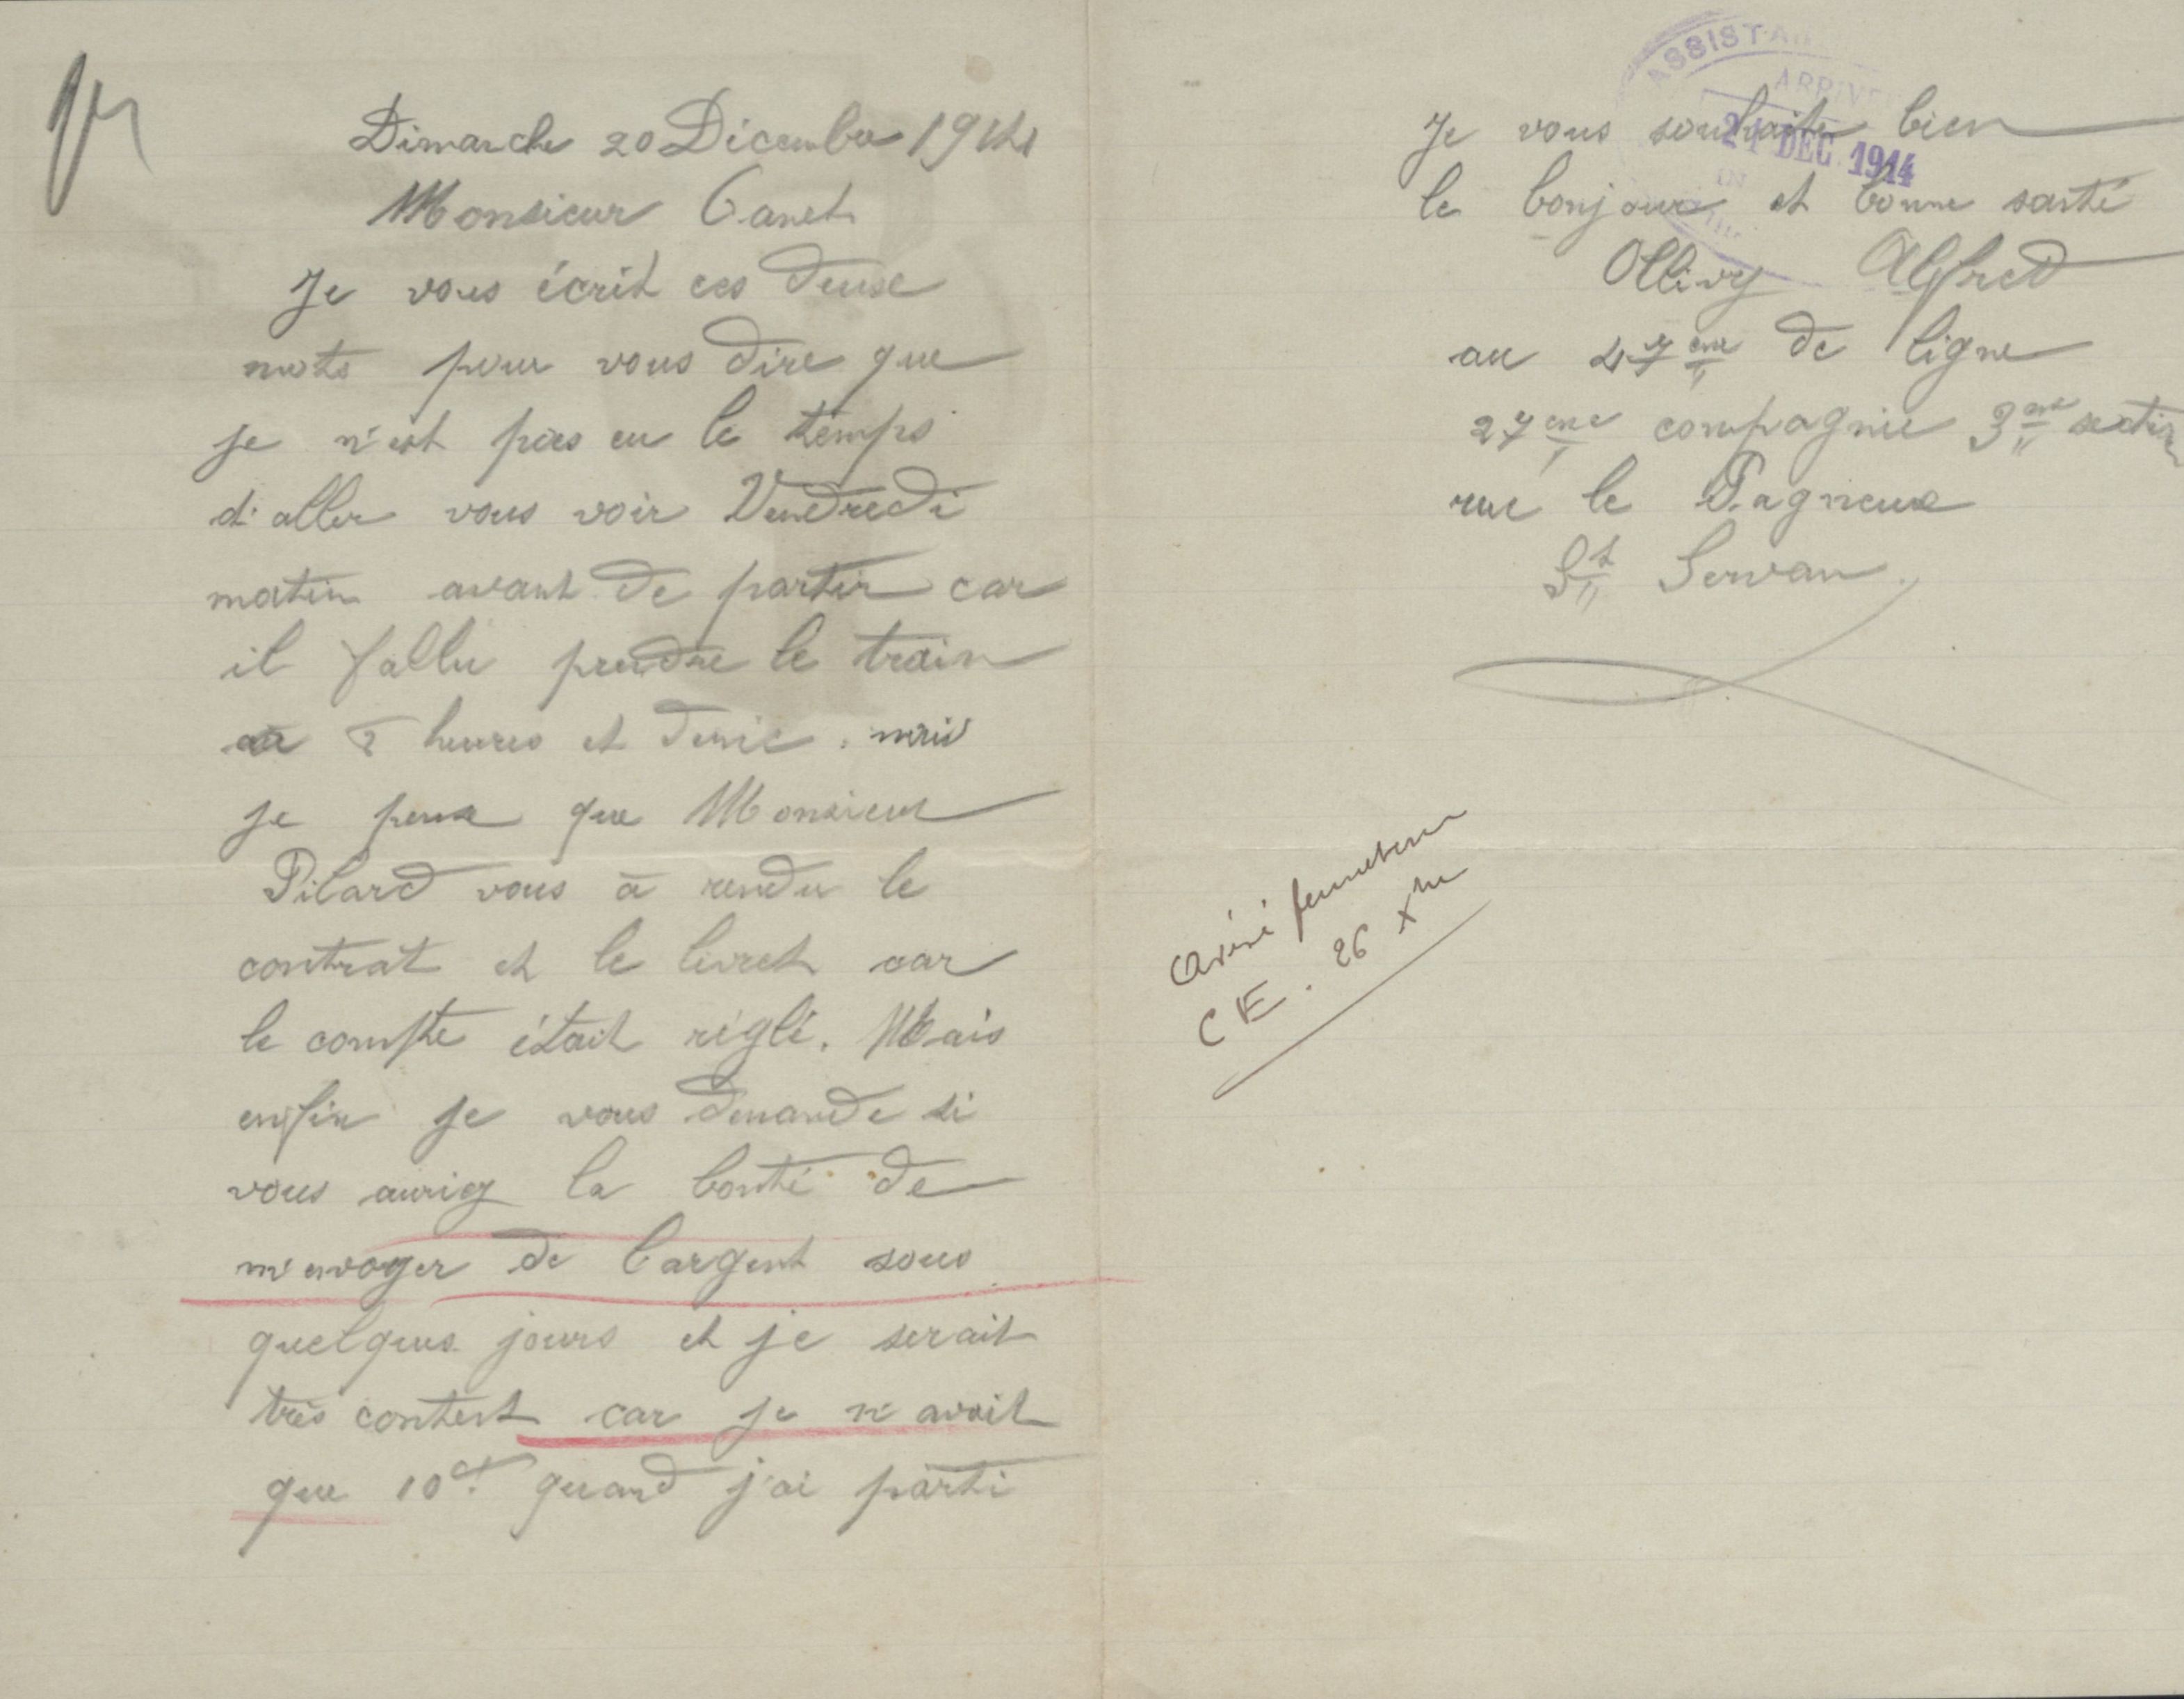 Dimanche 20 Décembre 1914
Monsieur Canet
Je vous écrit ces deuse
mots pour vous dire que
je n'est pas eu le temps
d'aller vous voir Vendredi
matin avant de partir car
il fallu prendre le train
a heures et demie. mais
je pense que Monsieur
Pilard vous à rendu le
contrat et le livret car
le compte était réglé. Mais
enfin je vous demande si
vous auriez la bonté de
m'envoyer de l'argent sous
quelques jours et je serait
très content car je n'avait
que 10 quand j'ai parti
ASSISTAN
ARRIVÉE
21 DEC 1914
Je vous souhaite bien
le bonjour et bonne santé
Ollivry Alfred
au 47ème de ligne
27ème compagnie 3ème section
rue le Pagneux
St Servan
C E. 26 Xbre